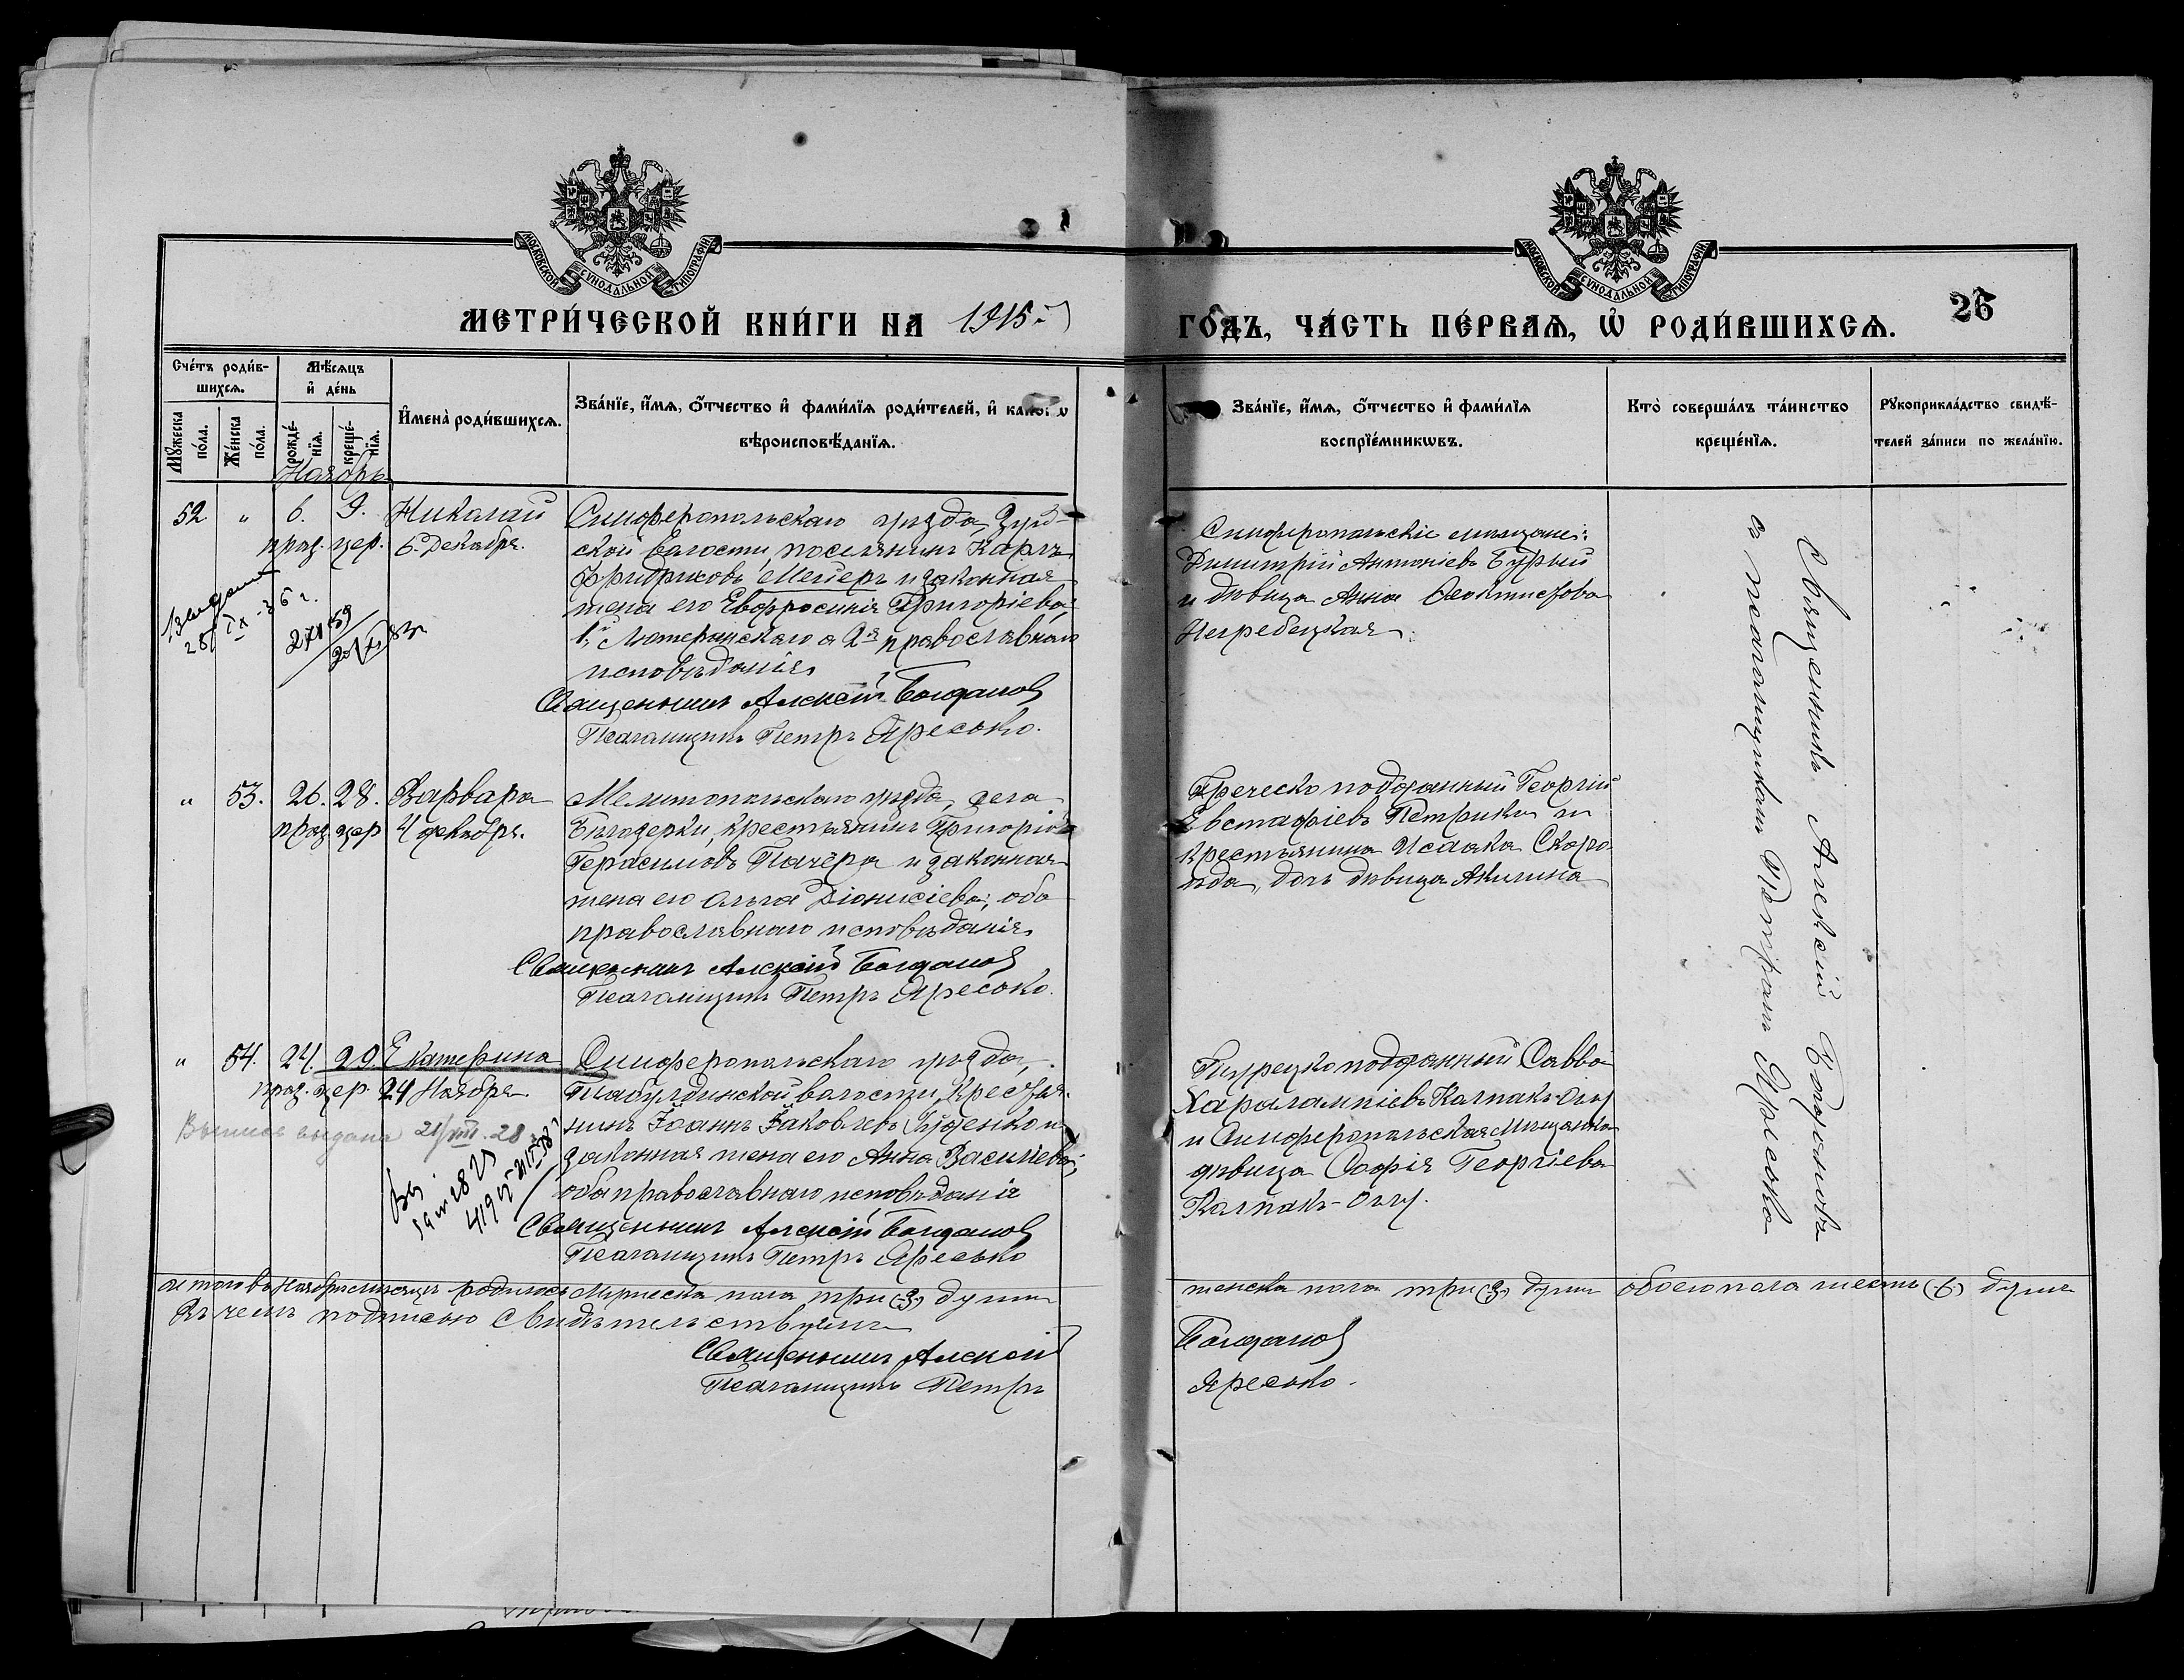 МОСКОВСКОЙ СѴНОДАЛЬНОЙ ТИПОГРАФІИ
МОСКОВСКОЙ СѴНОДАЛЬНОЙ ТИПОГРАФІИ
МЕТРИ́ЧЕСКОЙ КНИ́ГИ НА 1915 й
ГО́ДЪ, ЧА́СТЬ ПЕ́РВАѦ, Ѡ҆ РОДИ́ВШИХСѦ.
26
Сче́тъ роди́в-
шихсѧ.
Мꙋ́жеска по́ла.
Же́нска по́ла.
Мѣ́сѧцъ
и҆ де́нь
рожде́-нїѧ.
креще́-нїѧ.
И҆мена̀ роди́вшихсѧ.
Зва́нїе, и҆́мѧ, ѻ҆́тчество и҆ фами́лїѧ роди́телей, и҆ како́гѡ
вѣроисповѣ́данїѧ.
Зва́нїе, и҆́мѧ, ѻ҆́тчество и҆ фами́лїѧ
воспрїе́мникѡвъ.
Кто̀ соверша́лъ та́инство
креще́нїѧ.
Рꙋкоприкла́дство свидѣ́-
телей за́писи по жела́нїю.
Ноябрь
52 " 6. 9. Николай
праз. цер. 6. Декабря.
Симферопольскаго уѣзда, Зуй-
ской волости, поселянинъ Карлъ
Фридриховъ Мейеръ и законная
жена его Евфросинія Григоріева;
1й Лютеранскаго а 2-я православнаго
исповѣданія.
Священникъ Алексій Богдановъ
Псаломщикъ Петръ Яресько.
Симферопольскіе мѣщане:
Димитрій Антоніевъ Бурый
и дѣвица Анна Феоктистова
Негребецкая.
" 53. 26. 28. Варвара
праз. цер 4 декабря.
Мелитопольскаго уѣзда, села
крестьянинъ Григорій
Герасимовъ Пачёра и законная
жена его Ольга Діонисіева; оба
православнаго исповѣданія.
Священникъ Алексій Богдановъ
Псаломщикъ Петръ Яресько.
Греческо подданный Георгій
Евстафіевъ Петрика и
крестьянина Исаака Скоро-
хода, дочь дѣвица Акилина
" 54. 24. 29. Екатерина
праз. цер. 24 Ноября.
Выпись выдана 21/VIII. 28
Симферопольскаго уѣзда,
Табулдинской волости, крестья-
нинъ Іоаннъ Яковлевъ и
законная жена его Анна Васильева;
оба православнаго исповѣданія
Священникъ Алексій Богдановъ
Псаломщикъ Петръ Яресько
Турецко подданный Савва
Харалампіевъ Калпакъ-Оглу
и Симферопольская мѣщанка
дѣвица Софія Георгіева
Калпакъ-Оглу.
Священникъ Алексій Богдановъ
съ псаломщикомъ Петромъ Яресько
Итого въ Ноябрѣ мѣсяцѣ родилось Мужеска пола три (3) души
женска пола три (3) души обоего пола шесть (6) душъ
Въ чемъ подписью свидѣтельствуемъ
Священникъ Алексій Богдановъ
Псаломщикъ Петръ Яресько.